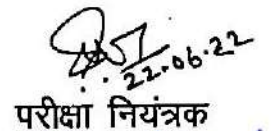 22.06.22
परीक्षा नियंत्रक